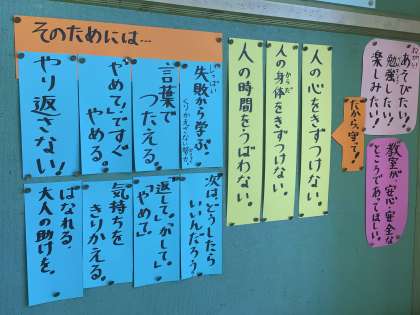 ねがい
あそびたい!
勉強したい!
楽しみたい!
教室が、安心・安全な
ところであってほしい。
だから、守って!
人の心をきずつけない。
からだ
人の身体をきずつけない。
人の時間をうばわない。
そのためには…
しっぱい
失敗から学ぶ。
くりかえさない努力。
言葉で
つたえる。
「やめて」ですぐ
やめる。
やり返さない!
次はどうしたら
いいんだろう
「返して。」「かして。」
「やめて」
気持ちを
きりかえる。
はなれる。
大人の助けを。